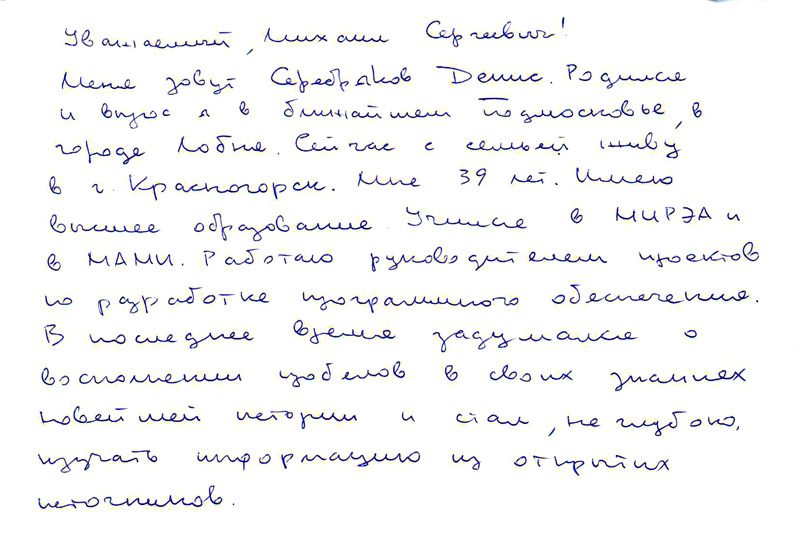 Уважаемый, Михаил Сергеевич!
Меня зовут Серебряков Денис. Родился
и вырос я в ближайшем Подмосковье, в
городе Лобня. Сейчас с семьей живу
в г. Красногорск. Мне 39 лет. Имею
высшее образование. Учился в МИРЭА и
в МАМИ. Работаю руководителем проектов
по разработке программного обеспечения.
В последнее время задумался о
восполнении пробелов в своих знаниях
новейшей истории и стал, не глубоко,
изучать информацию из открытых
источников.